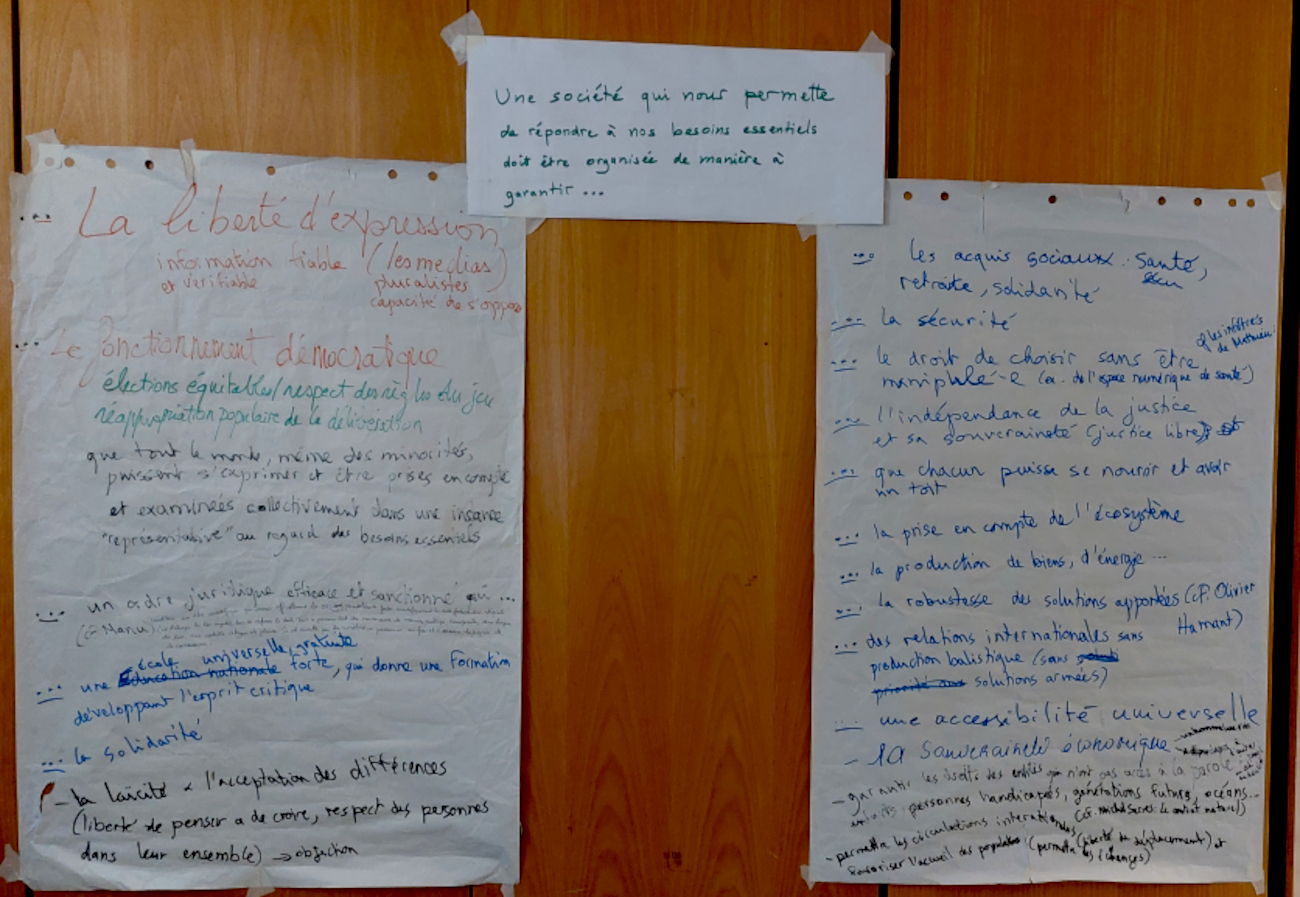 Une société qui nous permette
de répondre à nos besoins essentiels
doit être organisée de manière à
garantir ...
... La liberté d'expression
information fiable (les medias)
et vérifiable pluralistes
capacité de s'oppo
... Le fonctionnement démocratique
élections équitables/respect des règles du jeu
réappropriation populaire de la délibération
que tout le monde, même des minorités,
puissent s'exprimer et être prises en compte
et examinées collectivement dans une instance
"représentative" au regard des besoins essentiels
... un ordre juridique efficace et sanctionné ...
(cf Manu)
école universelle, gratuite
... une Education nationale forte, qui donne une formation
développant l'esprit critique
... la solidarité
- la laïcité & l'acceptation des différences
(liberté de penser & de croire, respect des personnes
dans leur ensemble) → objection
... les acquis sociaux : santé,
retraite, solidarité
... la sécurité
... le droit de choisir sans être
manipulé-e (ex. de l'espace numérique de santé)
... l'indépendance de la justice
et sa souveraineté (justice libre)
... que chacun puisse se nourir et avoir
un toit
... la prise en compte de l'écosystème
... la production de biens, d'énergie ...
... la robustesse des solutions apportées (cf. Olivier
Hamant)
... des relations internationales sans
production balistique (sans
priorité aux solutions armées)
... une accessibilité universelle
- la souveraineté économique
- garantir les droits des entités qui n'ont pas accès à la parole :
personnes handicapés, générations futures, océans...
(cf. Michel Serres: Le contrat naturel)
- permettre les circulations internationales (liberté de déplacement) et
favoriser l'accueil des populations (permettre les échanges)